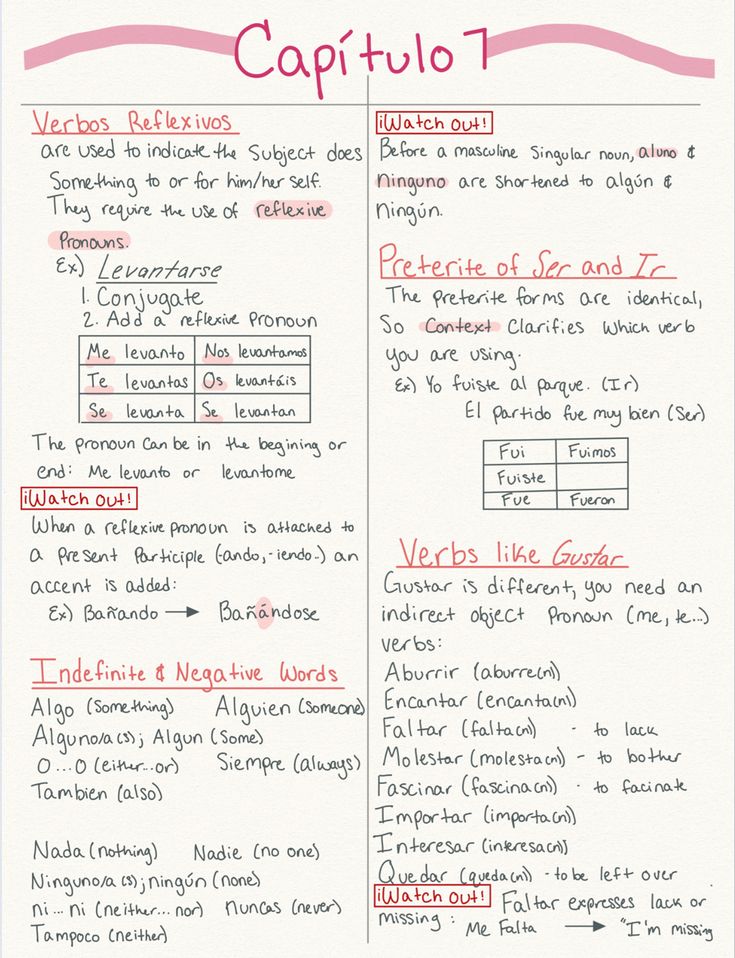 Capítulo 7
Verbos Reflexivos
are used to indicate the Subject does
Something to or for him/her self.
They require the use of reflexive
Pronouns.
Ex) Levantarse
1. Conjugate
2. Add a reflexive Pronoun
Me levanto Nos levantamos
Te levantas Os levantáis
Se levanta Se levantan
The pronoun can be in the begining or
end: Me levanto or levantome
¡Watch out!
When a reflexive pronoun is attached to
a Present Participle (-ando, -iendo..) an
accent is added:
Ex) Bañando → Bañándose
Indefinite & Negative Words
Algo (Something) Alguien (Someone)
Alguno/a(s); Algun (Some)
O...O (either...or) Siempre (always)
Tambien (also)
Nada (nothing) Nadie (no one)
Ninguno/a(s); ningún (none)
ni... ni (neither... nor) nuncas (never)
Tampoco (neither)
¡Watch out!
Before a masculine Singular noun, aluno &
ninguno are shortened to algún &
ningún.
Preterite of Ser and Ir
The preterite forms are identical,
So Context Clarifies which verb
you are using.
Ex) Yo fuiste al parque. (Ir)
El partido fue muy bien (Ser)
Fui Fuimos
Fuiste
Fue Fueron
Verbs like Gustar
Gustar is different, you need an
indirect object Pronoun (me, te...)
verbs:
Aburrir (aburre(n))
Encantar (encanta(n))
Faltar (falta(n)) - to lack
Molestar (molesta(n)) - to bother
Fascinar (fascina(n)) - to facinate
Importar (importa(n))
Interesar (interesa(n))
Quedar (queda(n)) - to be left over
¡Watch out! Faltar expresses lack or
missing: Me Falta → "I'm missing